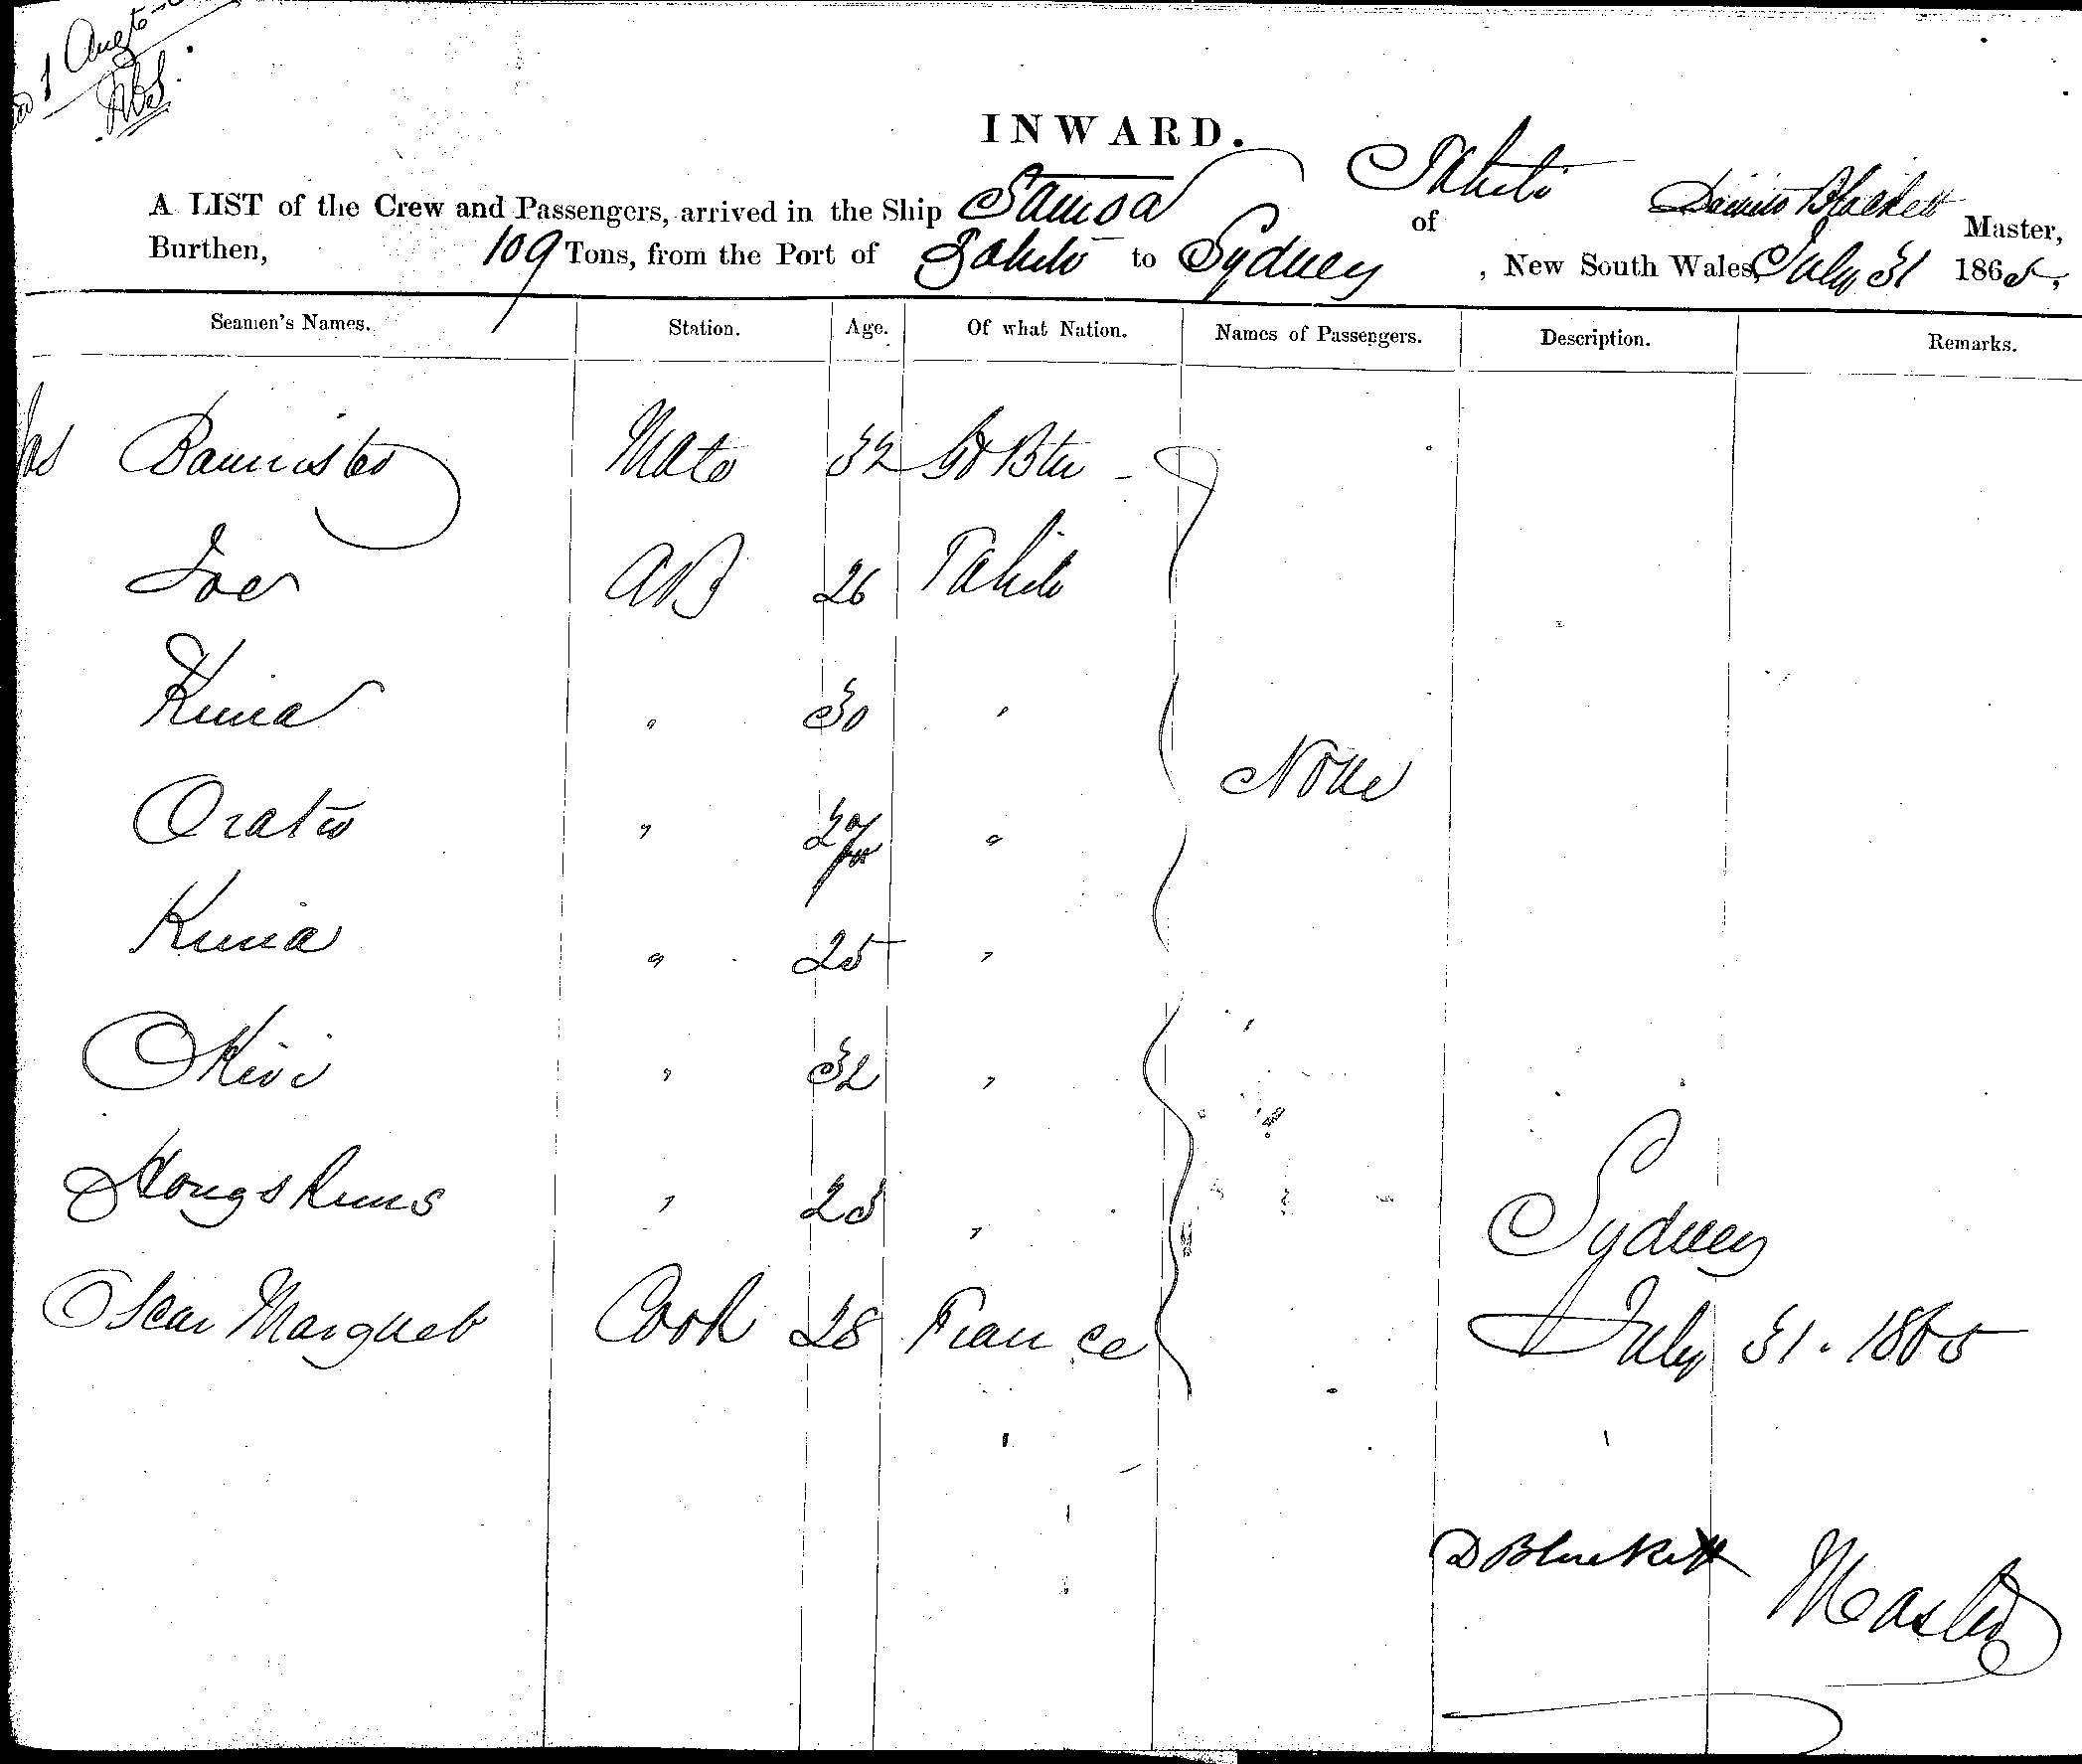 1 Augt
INWARD.
A LIST of the Crew and Passengers, arrived in the Ship Samoa of Tahiti Blackett Master,
Burthen, 109 Tons, from the Port of Tahiti to Sydney, New South Wales, July 31 1865,
Seamen's Names. Station. Age. Of what Nation. Names of Passengers. Description. Remarks.
Jas Bannister Mate 32 Gt Btn -
Joe AB 26 Tahiti
Kuia " 30 "
None
" 27 "
Kuia " 25 "
Okivi " 32 "
" 23 "
Sydney
Oscar Cook 28 France
July 31. 1865
D Blackett Master